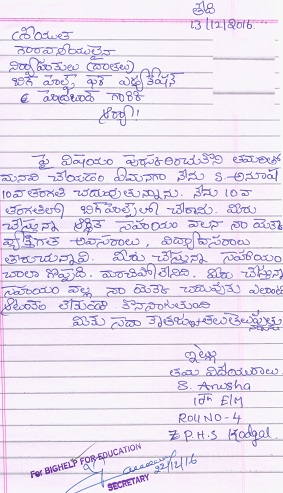 తేది
13/12/2016.
శ్రీయుత
గౌరవనీయులైన
నిర్వాహకులు (దాతలు)
బిగ్ హెల్ప్ ఫర్ ఎడ్యుకేషన్
గారికి
ఆర్యా!
పై విషయం పురస్కరించుకొని తమరితో
మనవి చేయడం ఏమనగా నేను S. అనూష
10వ తరగతి చదువుతున్నాను. నేను 10వ
తరగతిలో బిగ్ హెల్ప్ లో చేరాను. మీరు
చేస్తున్న ఆర్థిక సహాయం వలన నా యొక్క
వ్యక్తిగత అవసరాలు, విద్యావసరాలు
తీరుచున్నవి. మీరు చేస్తున్న సహాయం
చాలా గొప్పది. మరచిపోలేనిది. మీరు చేస్తున్న
సహాయం వల్ల నా యొక్క చదువుకు ఎలాంటి
ఆటంకం లేకుండా కొనసాగుతుంది
మీకు సదా కృతజ్ఞతలు తెలుపుతున్నాను
ఇట్లు
తమ విధేయురాలు
S. Anusha
10th E/M
Roll NO - 4
Z.P.H.S Kodgal.
For BIGHELP FOR EDUCATION
22/12/16
SECRETARY